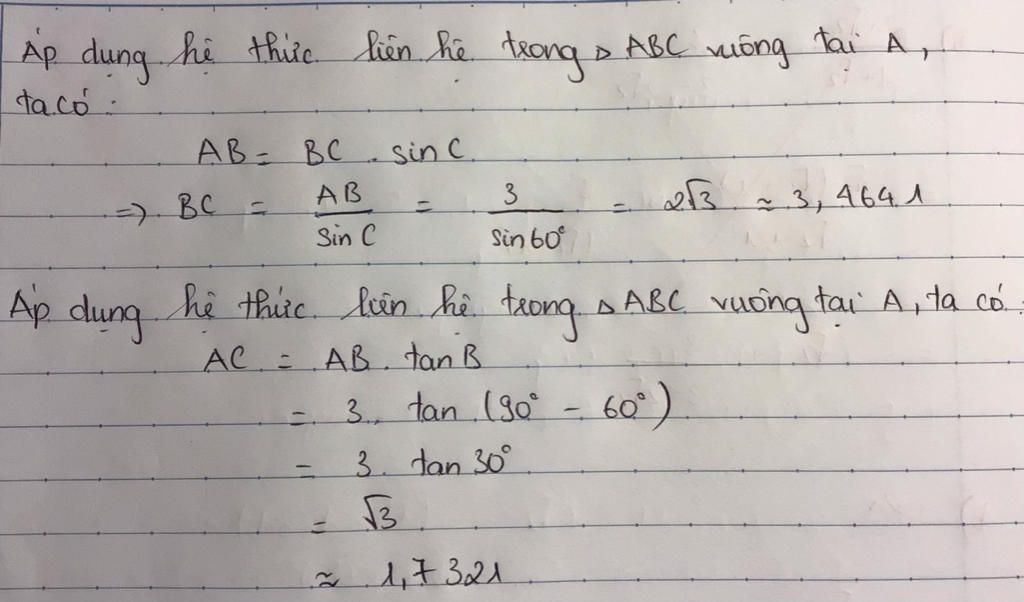 Áp dụng hệ thức liên hệ trong △ ABC vuông tại A,
ta có :
AB = BC . sin C
=> BC = AB / sin C = 3 / sin 60° = 2√3 ≈ 3,4641
Áp dụng hệ thức liên hệ trong △ ABC vuông tại A, ta có :
AC = AB . tan B
= 3. tan (90° - 60°)
= 3. tan 30°
= √3
≈ 1,7321